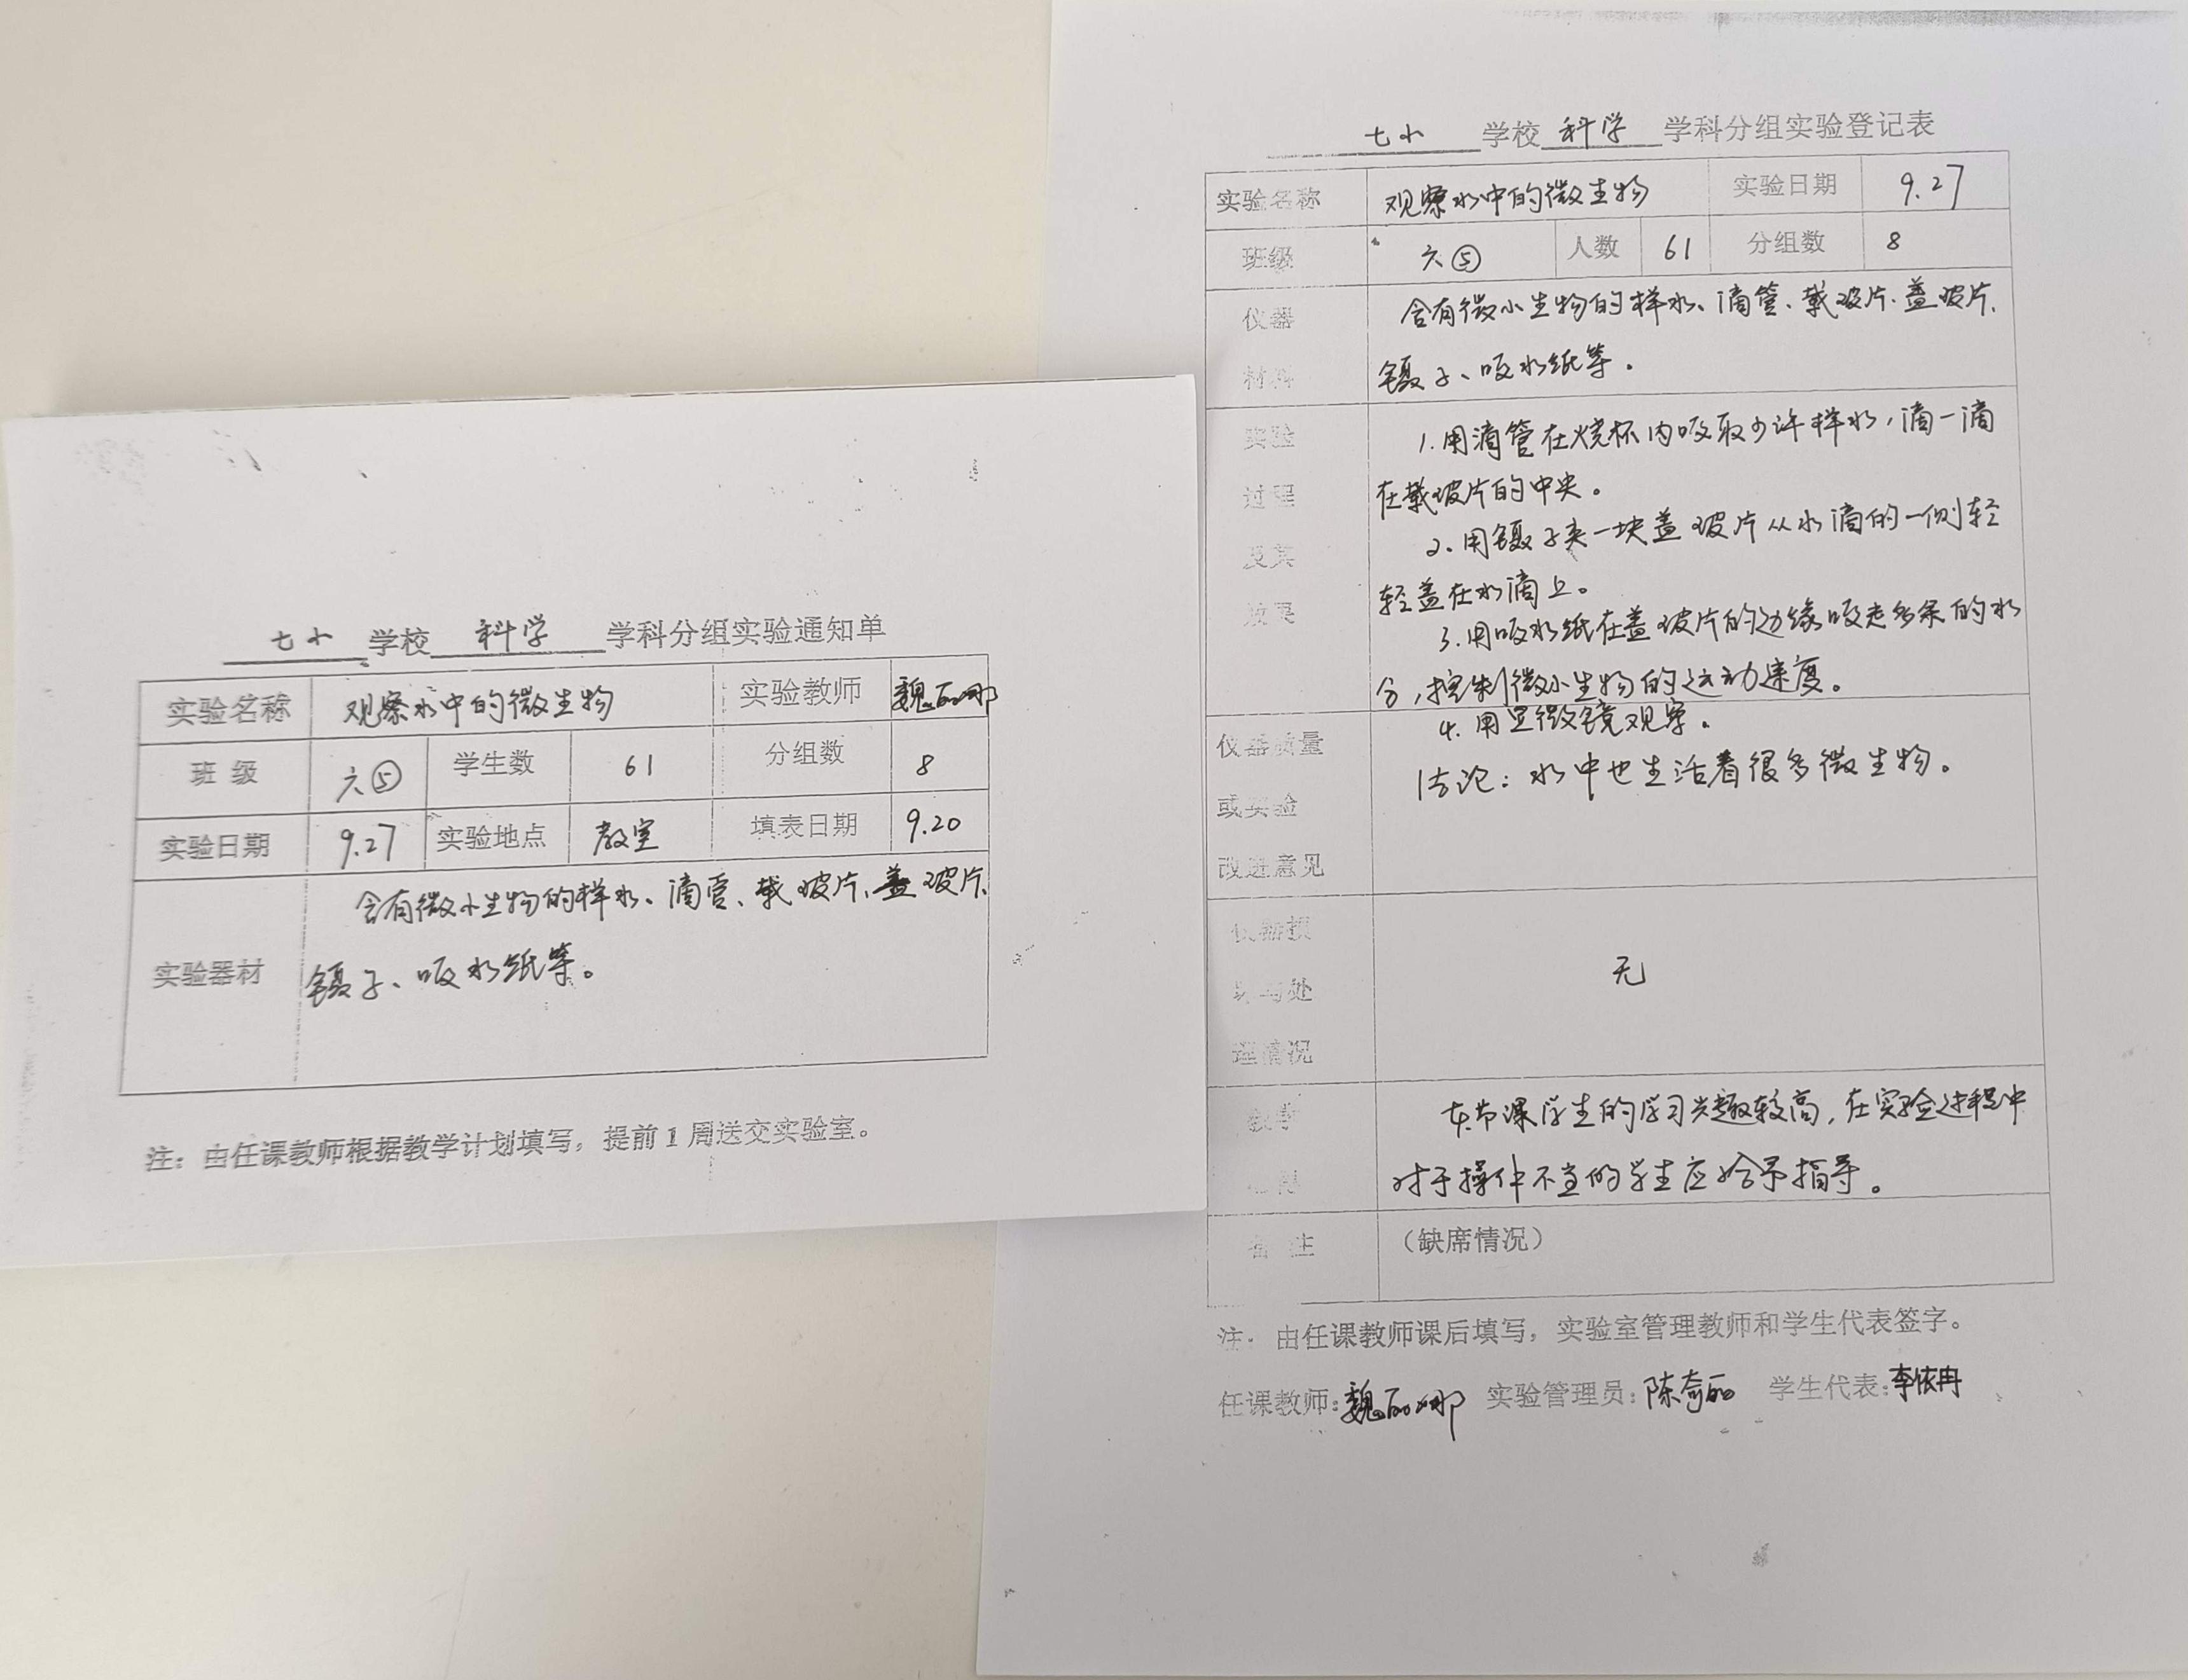 七小 学校 科学 学科分组实验通知单
实验名称 观察水中的微生物 实验教师 魏丽娜
班 级 六⑤ 学生数 61 分组数 8
实验日期 9.27 实验地点 教室 填表日期 9.20
实验器材 含有微小生物的样水、滴管、载玻片、盖玻片、
镊子、吸水纸等。
注：由任课教师根据教学计划填写，提前1周送交实验室。
七小 学校 科学 学科分组实验登记表
实验名称 观察水中的微生物 实验日期 9.27
班级 六⑤ 人数 61 分组数 8
仪器 含有微小生物的样水、滴管、载玻片、盖玻片、
材料 镊子、吸水纸等。
实验 1.用滴管在烧杯内吸取少许样水，滴一滴
过程 在载玻片的中央。
及其 2.用镊子夹一块盖玻片从水滴的一侧轻
效果 轻盖在水滴上。
3.用吸水纸在盖玻片的边缘吸走多余的水
分，控制微小生物的运动速度。
4.用显微镜观察。
仪器质量 结论：水中也生活着很多微生物。
或实验
改进意见
仪器损
坏与处 无
理情况
教学 本节课学生的学习兴趣较高，在实验过程中
心得 对于操作不当的学生应给予指导。
备 注 （缺席情况）
注：由任课教师课后填写，实验室管理教师和学生代表签字。
任课教师：魏丽娜 实验管理员：陈奇丽 学生代表：李依冉